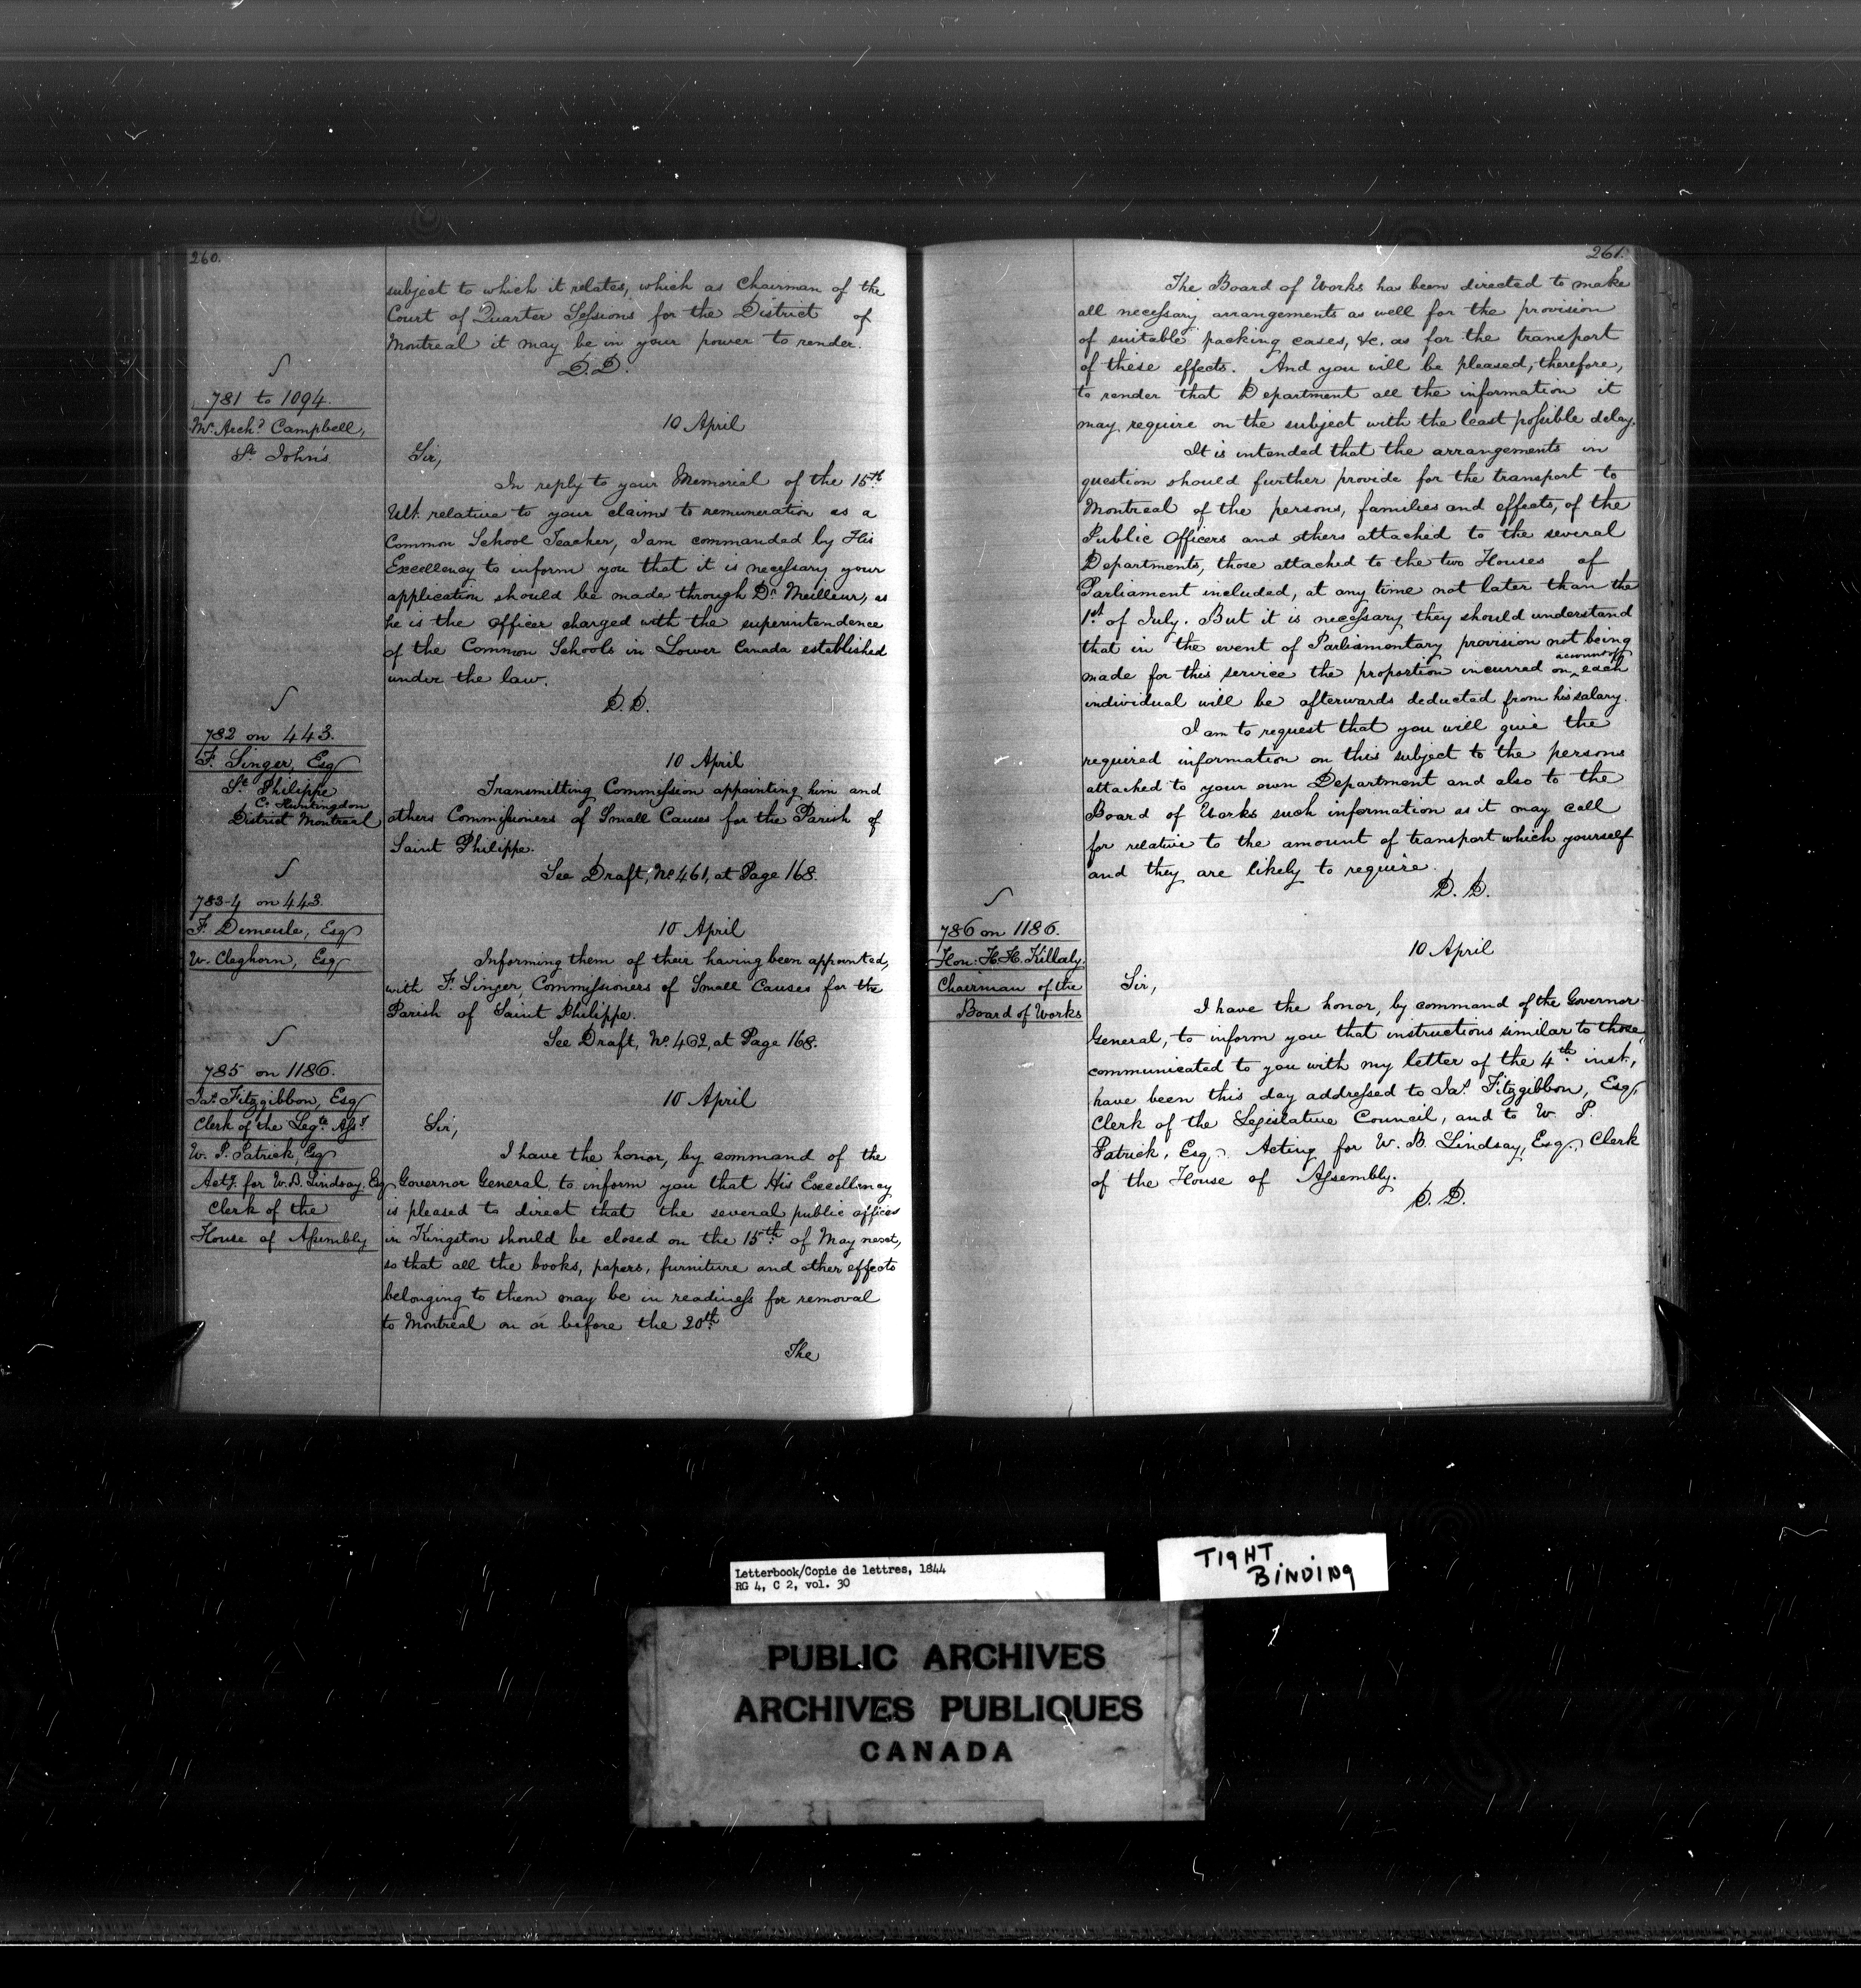 260.
subject to which it relates, which as Chairman of the
Court of Quarter Sessions for the District of
Montreal it may be in your power to render.
D.D.
781 to 1094.
Mr. Archd. Campbell,
St. John's
10 April
Sir,
In reply to your Memorial of the 15th
Ult. relative to your claims to remuneration as a
Common School Teacher, I am commanded by His
Excellency to inform you that it is necessary your
application should be made through Dr. Meilleur, as
he is the Officer charged with the superintendence
of the Common Schools in Lower Canada established
under the law.
D.D.
782 on 443.
F. Singer, Esq
St. Philippe
Co. Huntingdon
District Montreal
10 April
Transmitting Commission appointing him and
others Commissioners of Small Causes for the Parish of
Saint Philippe.
See Draft, No. 461, at Page 168.
783-4 on 443.
F. Demeule, Esq
W. Cleghorn, Esq
10 April
Informing them of their having been appointed,
with F. Singer, Commissioners of Small Causes for the
Parish of Saint Philippe.
See Draft, No. 462, at Page 168.
785 on 1186.
Jas. Fitzgibbon, Esq
Clerk of the Legte. Assy.
W. P. Patrick, Esq
Actg. for W. B. Lindsay, Esq
Clerk of the
House of Assembly
10 April
Sir,
I have the honor, by command of the
Governor General, to inform you that His Excellency
is pleased to direct that the several public offices
in Kingston should be closed on the 15th of May next,
so that all the books, papers, furniture and other effects
belonging to them may be in readiness for removal
to Montreal on or before the 20th
The
261.
The Board of Works has been directed to make
all necessary arrangements as well for the provision
of suitable packing cases, &c. as for the transport
of these effects. And you will be pleased, therefore,
to render that Department all the information it
may require on the subject with the least possible delay.
It is intended that the arrangements in
question should further provide for the transport to
Montreal of the persons, families and effects, of the
Public Officers and others attached to the several
Departments, those attached to the two Houses of
Parliament included, at any time not later than the
1st of July. But it is necessary they should understand
that in the event of Parliamentary provision not being
made for this service the proportion incurred on account of each
individual will be afterwards deducted from his salary.
I am to request that you will give the
required information on this subject to the persons
attached to your own Department and also to the
Board of Works such information as it may call
for relative to the amount of transport which yourself
and they are likely to require.
D.D.
786 on 1186.
Hon: H. H. Killaly.
Chairman of the
Board of Works
10 April
Sir,
I have the honor, by command of the Governor
General, to inform you that instructions similar to those,
communicated to you with my letter of the 4th inst.,
have been this day addressed to Jas. Fitzgibbon, Esq,
Clerk of the Legislative Council, and to W. P.
Patrick, Esq., Acting for W. B. Lindsay, Esq., Clerk
of the House of Assembly.
D.D.
Letterbook/Copie de lettres, 1844
RG 4, C 2, vol. 30
TIGHT
BINDING
PUBLIC ARCHIVES
ARCHIVES PUBLIQUES
CANADA